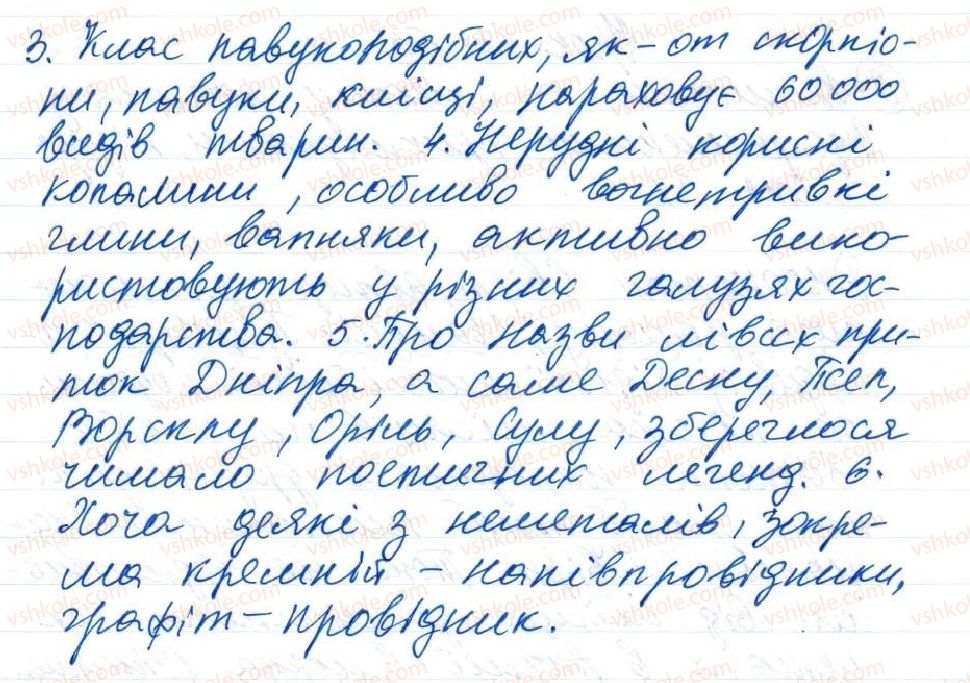 3. Клас павукоподібних, як-от скорпіо-
ни, павуки, кліщі, нараховує 60 000
видів тварин. 4. Нерудні корисні
копалини, особливо вогнетривкі
глини, вапняки, активно вико-
ристовують у різних галузях гос-
подарства. 5. Про назви лівих при-
ток Дніпра, а саме Десну, Псел,
Ворсклу, Оріль, Сулу, збереглося
чимало поетичних легенд. 6.
Хоча деякі з неметалів, зокре-
ма кремній – напівпровідники,
графіт – провідник.